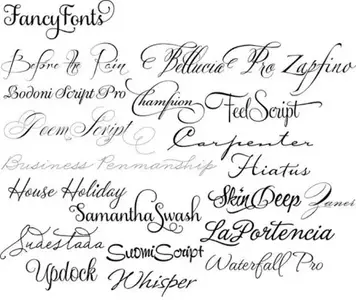 FancyFonts
Before the Rain Bellucia Pro Zapfino
Bodoni Script Pro Champion FeelScript
Poem Script Carpenter
Business Penmanship Hiatus
House Holiday SkinDeep Zaner
SamanthaSwash LaPortencia
Sudestada SuomiScript Waterfall Pro
Updock Whisper